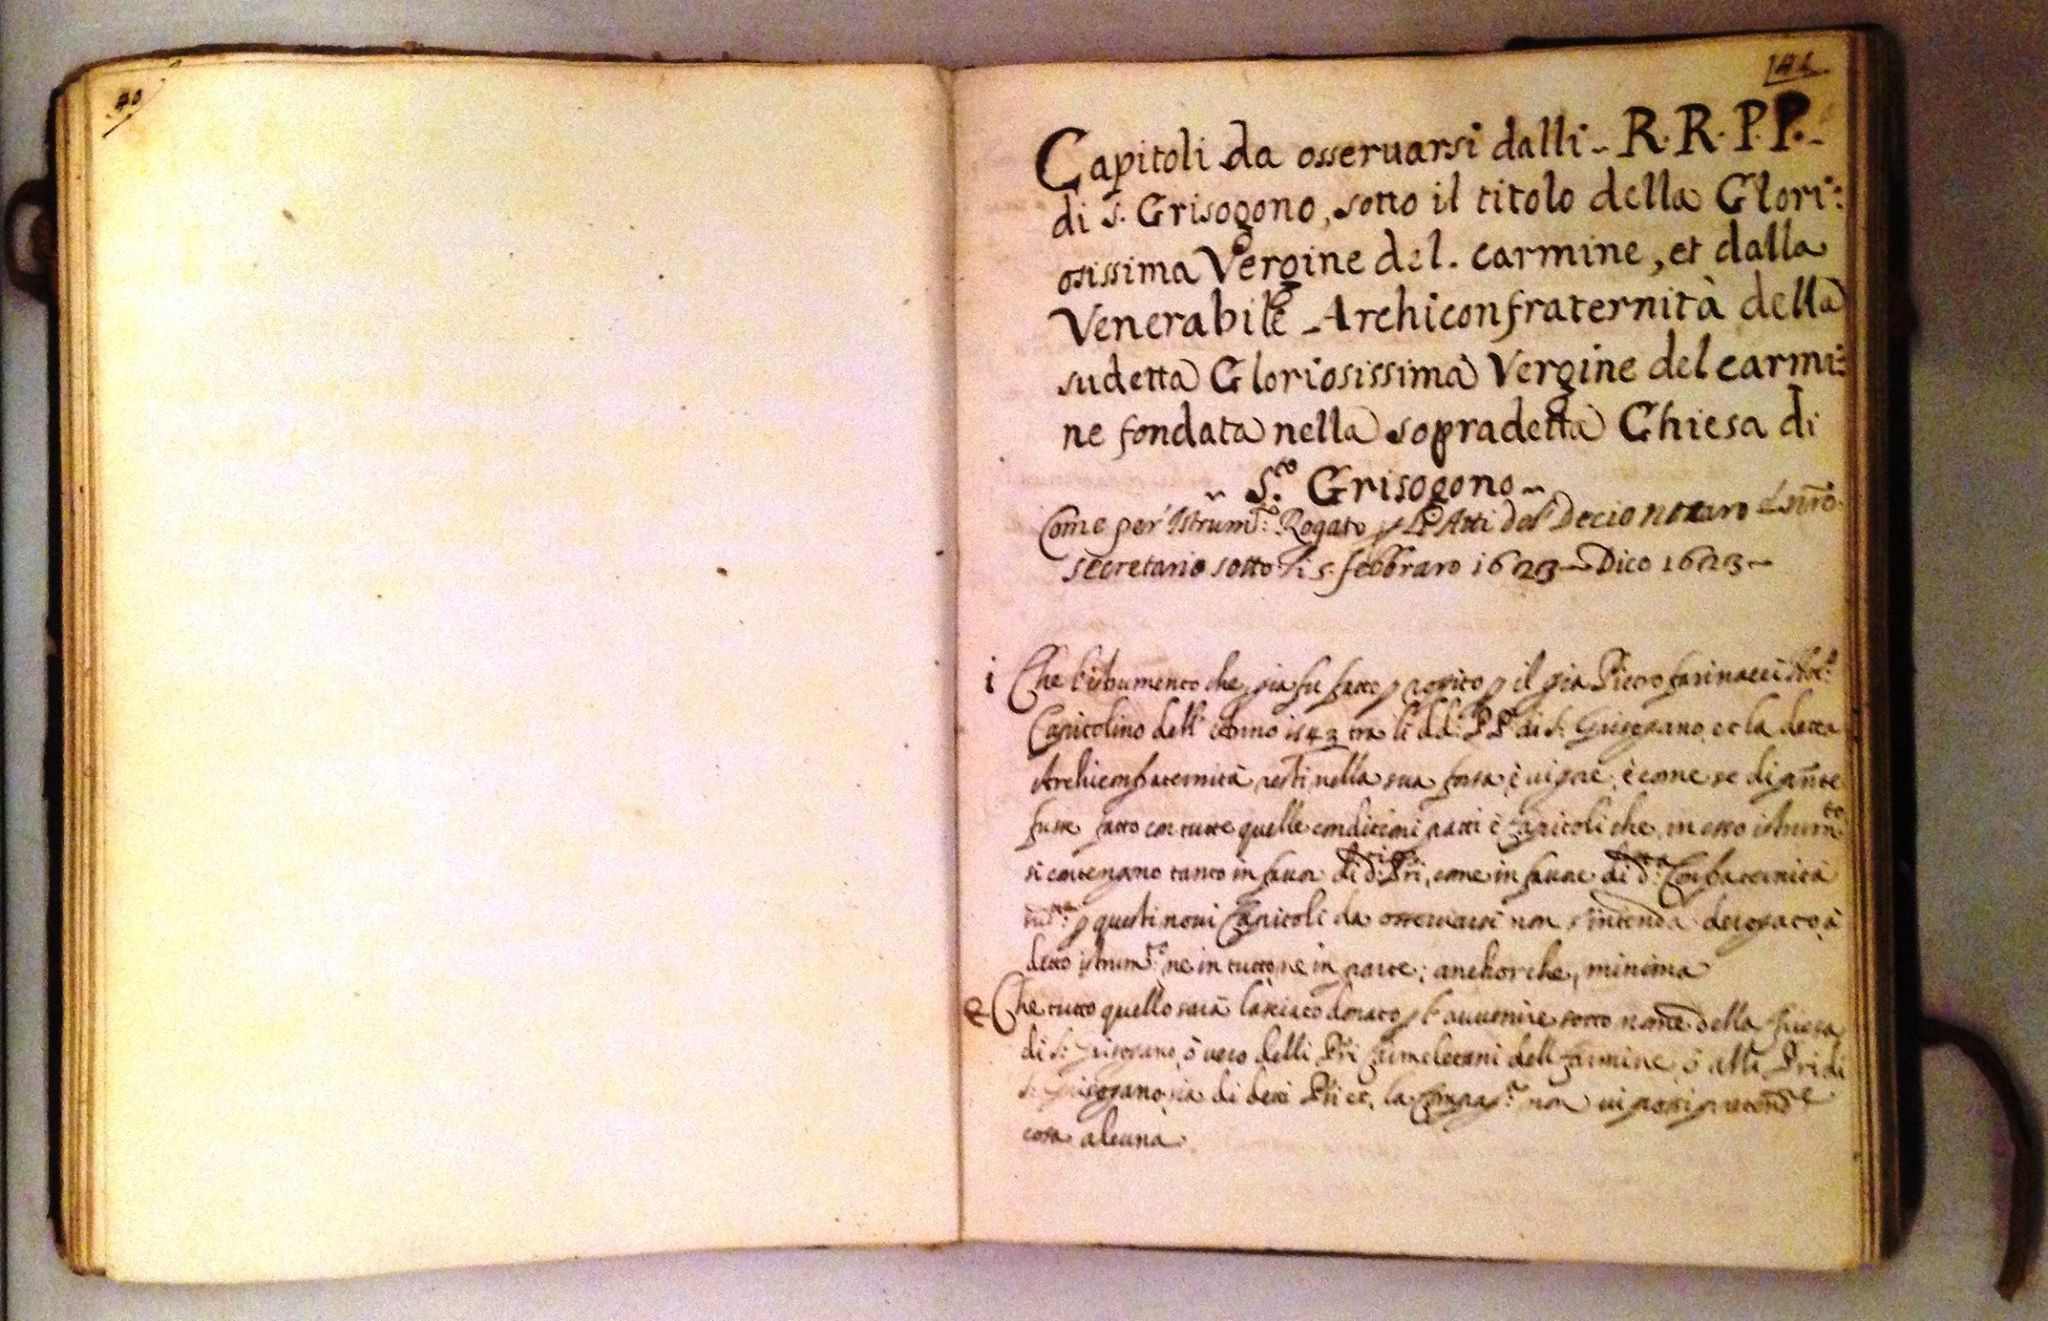 40
141
Capitoli da osseruarsi dalli ~ R. R. P. P. ~
di S. Grisogono, sotto il titolo della Glori:
osissima Vergine del. carmine, et dalla
Venerabile Archiconfraternità della
sudetta Gloriosissima Vergine del carmi:
ne fondata nella sopradetta Chiesa di
~ S.to Grisogono ~
Come per Istrum.to Rogato p li Atti del Decio notaro et nr̃o
secretario sotto li 5. febbraro 1623 ~ Dico 1623 ~
i Che l'istrumento che già fu fatto p rogito p il già Pietro farinacci Not.o
Capitolino dell' Anno 1543 tra li dd. PP. di S. Grisogano et la detta
Archiconfraternità resti nella sua forza, è uigore, è come se di pn̄te
fusse fatto con tutte quelle conditioni patti è Capitoli che in esso istrum.to
si contengono tanto in fauor di d. Pri, come in fauore di d. Confraternità
p questi noui Capitoli da osseruarsi non s'intenda derogato à
detto istrum.to ne in tutto ne in parte, anchorche, minima
2 Che tutto quello sarà lasciato donato p l'auuenire sotto nome della Chiesa
di S. Grisogano, ò uero delli Pri Carmelitani dell Carmine, ò alli Pri di
S. Grisogano, sia di detti Pri et, la Compag.a non ui possi pretend.e
cosa alcuna.